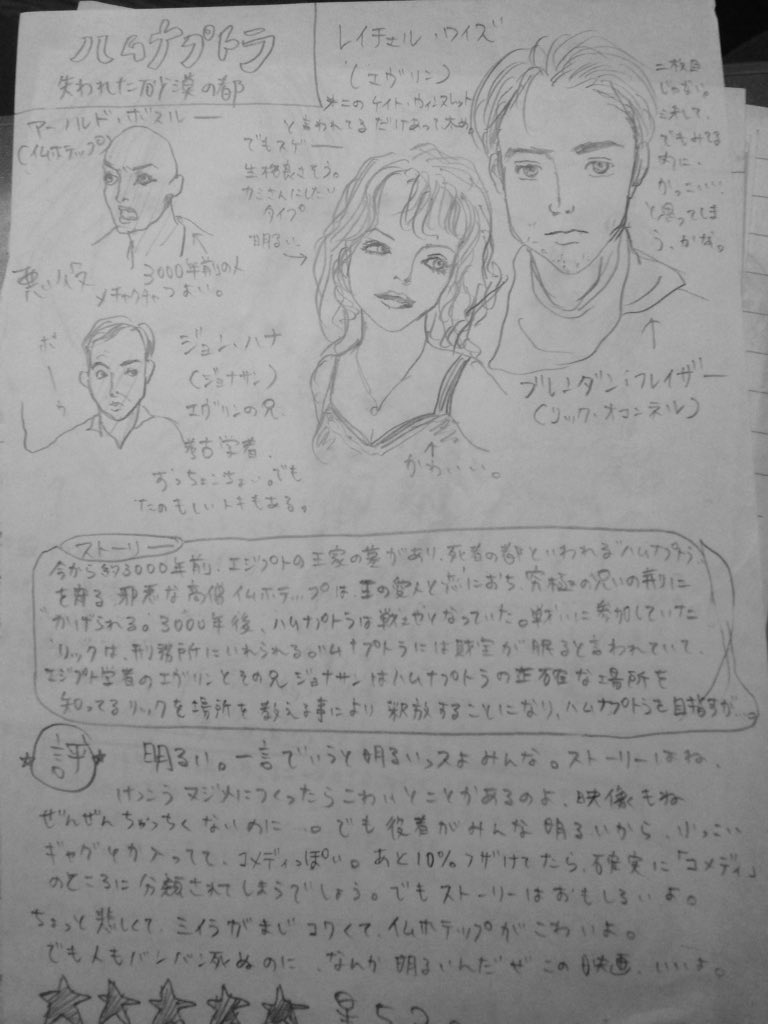 ハムナプトラ
失われた砂漠の都
アーノルド・ボスルー
(イムホテップ)
悪いハゲ
3000年前の人
メチャクチャつよい。
レイチェル・ワイズ
(エヴリン)
第二のケイト・ウィンスレット
と言われてるだけあって太め。
でもスゲー
性格良さそう。
カミさんにしたい
タイプ
明るい
かわいい。
二枚目
じゃない。
決して、
でもみてる
内に、
かっこいい、
と思ってしま
う、かな。
ブレンダン・フレイザー
(リック・オコンネル)
ボーっ
ジョン・ハナ
(ジョナサン)
エヴリンの兄
考古学者、
おっちょこちょい。でも
たのもしいトキもある。
ストーリー
今から約3000年前、エジプトの王家の墓があり、死者の都といわれるハムナプトラ
を守る邪悪な高僧イムホテップは、王の愛人と恋におち、究極の呪いの刑に
かけられる。3000年後、ハムナプトラは戦場となっていた。戦いに参加していた
リックは、刑務所にいれられる。ハムナプトラには財宝が眠ると言われていて、
エジプト学者のエヴリンとその兄ジョナサンはハムナプトラの正確な場所を
知ってるリックを場所を教える事により釈放することになり、ハムナプトラを目指すが…
評 明るい。一言でいうと明るいっスよみんな。ストーリーはね、
けっこうマジメにつくったらこわいとことかあるのよ、映像もね
ぜんぜんちゃっちくないのに…。でも役者がみんな明るいから、小っこい
ギャグとか入ってて、コメディっぽい。あと10%フザけてたら、確実に「コメディ」
のところに分類されてしまうでしょう。でもストーリーはおもしろいよ。
ちょっと悲しくて、ミイラがまじコワくて、イムホテップがこわいよ。
でも人もバンバン死ぬのに、なんか明るいんだぜこの映画、いいよ。
★★★★★ 星5つ。